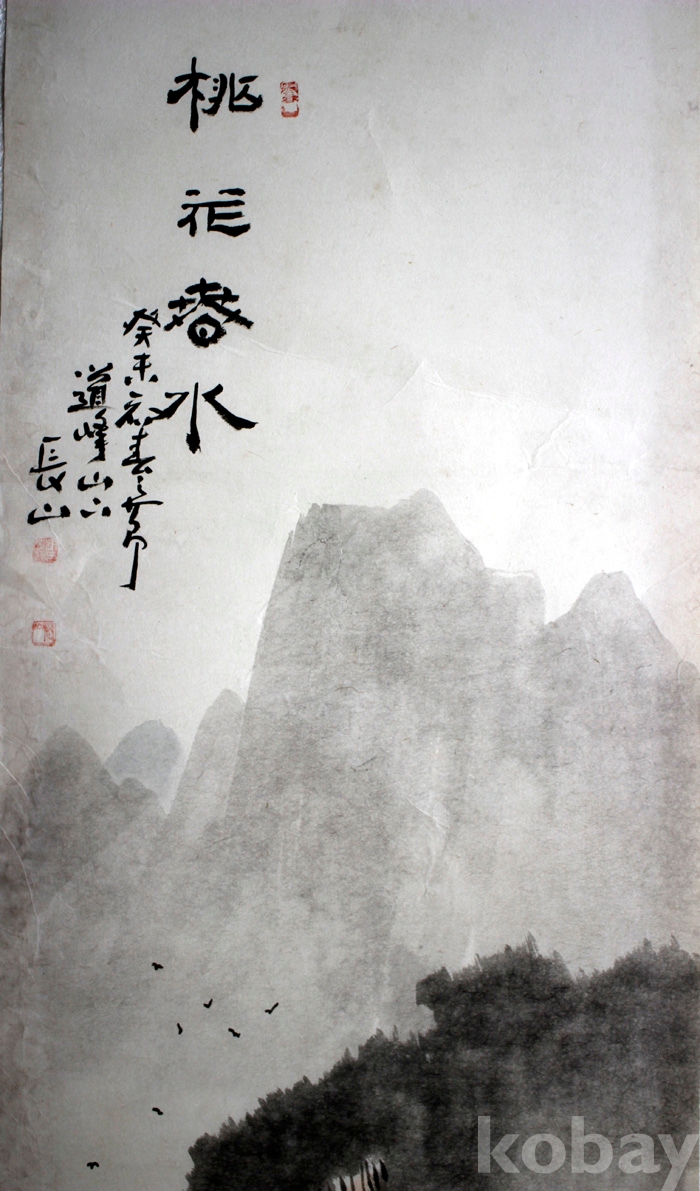 桃花春水
癸未初春之節
道峰山下
長山
kobay